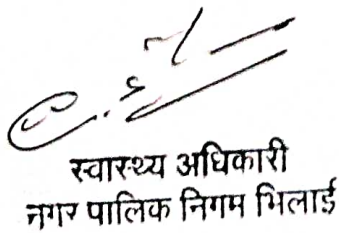 स्वास्थ्य अधिकारी
नगर पालिक निगम भिलाई